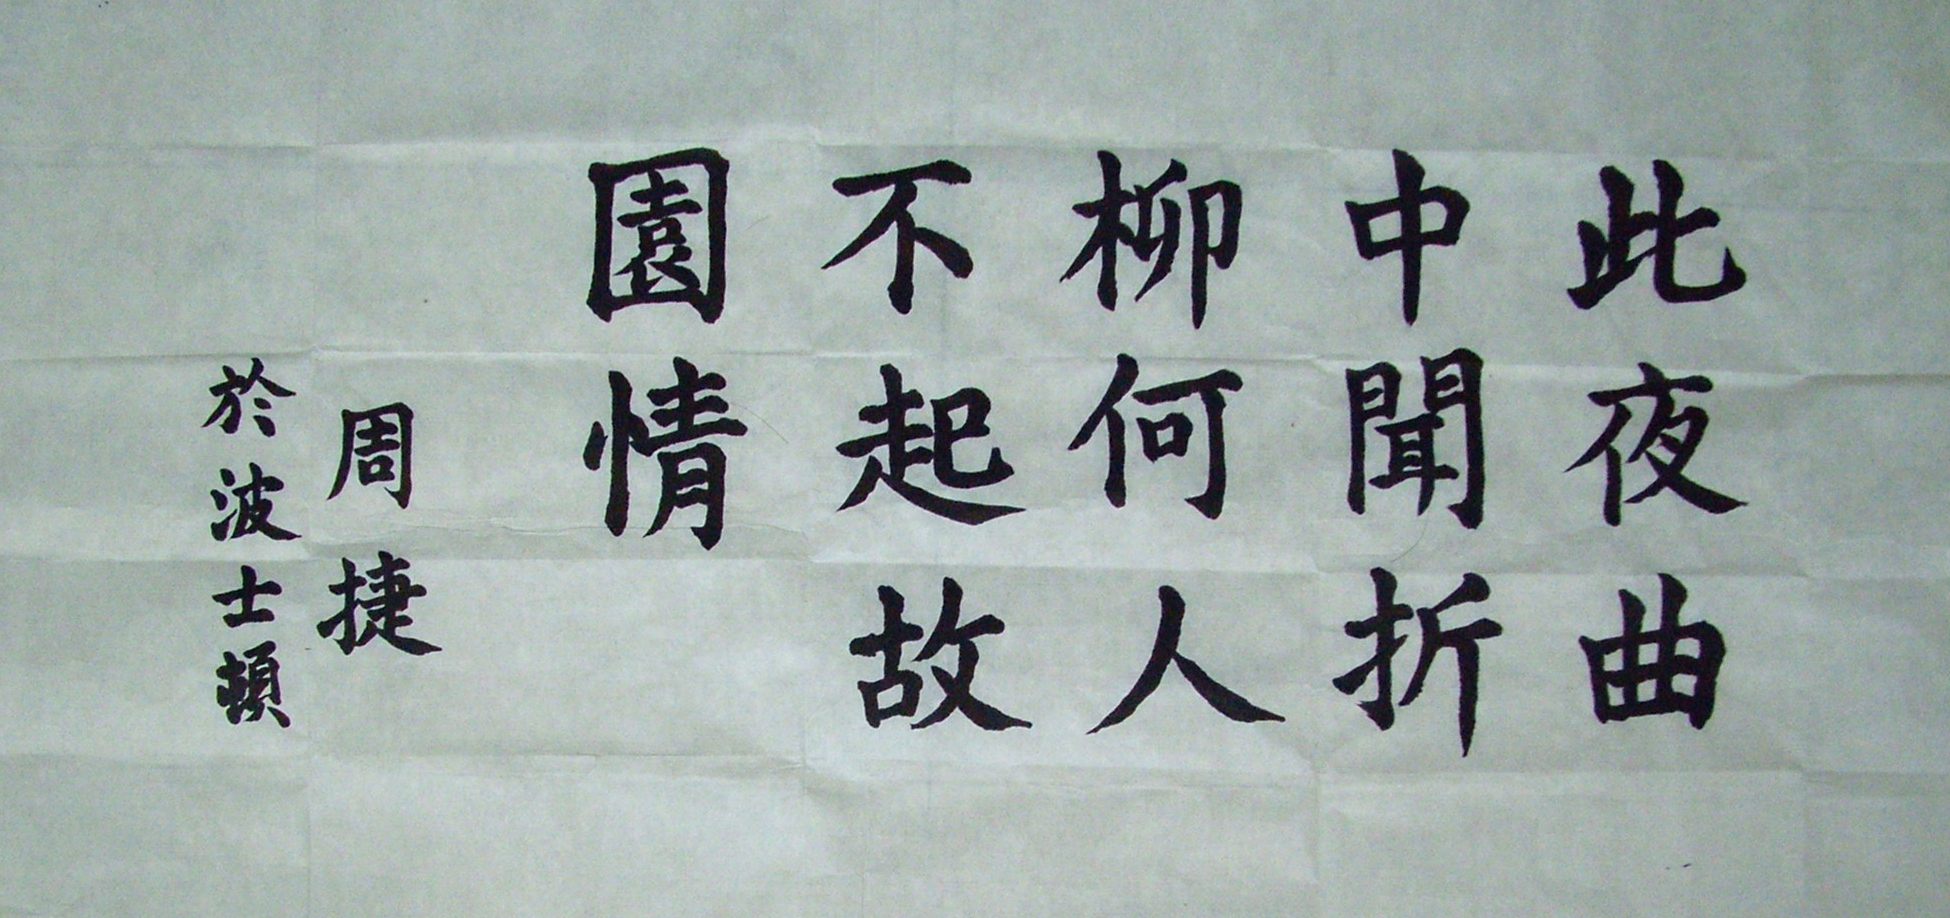 此夜曲
中聞折
柳何人
不起故
園情
周捷
於波士頓